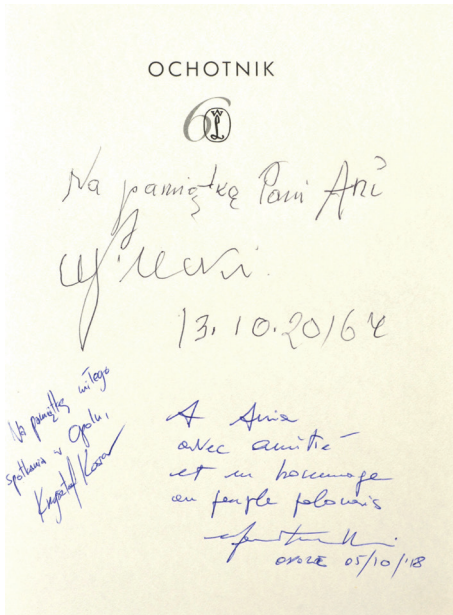 OCHOTNIK
60
Na pamiątkę Pani Ani
13.10.2016 r
Na pamiątkę miłego
spotkania w Opolu,
Krzysztof
A Ania
avec amitié
et un hommage
au peuple polonais
OPOLE 05/10/'18